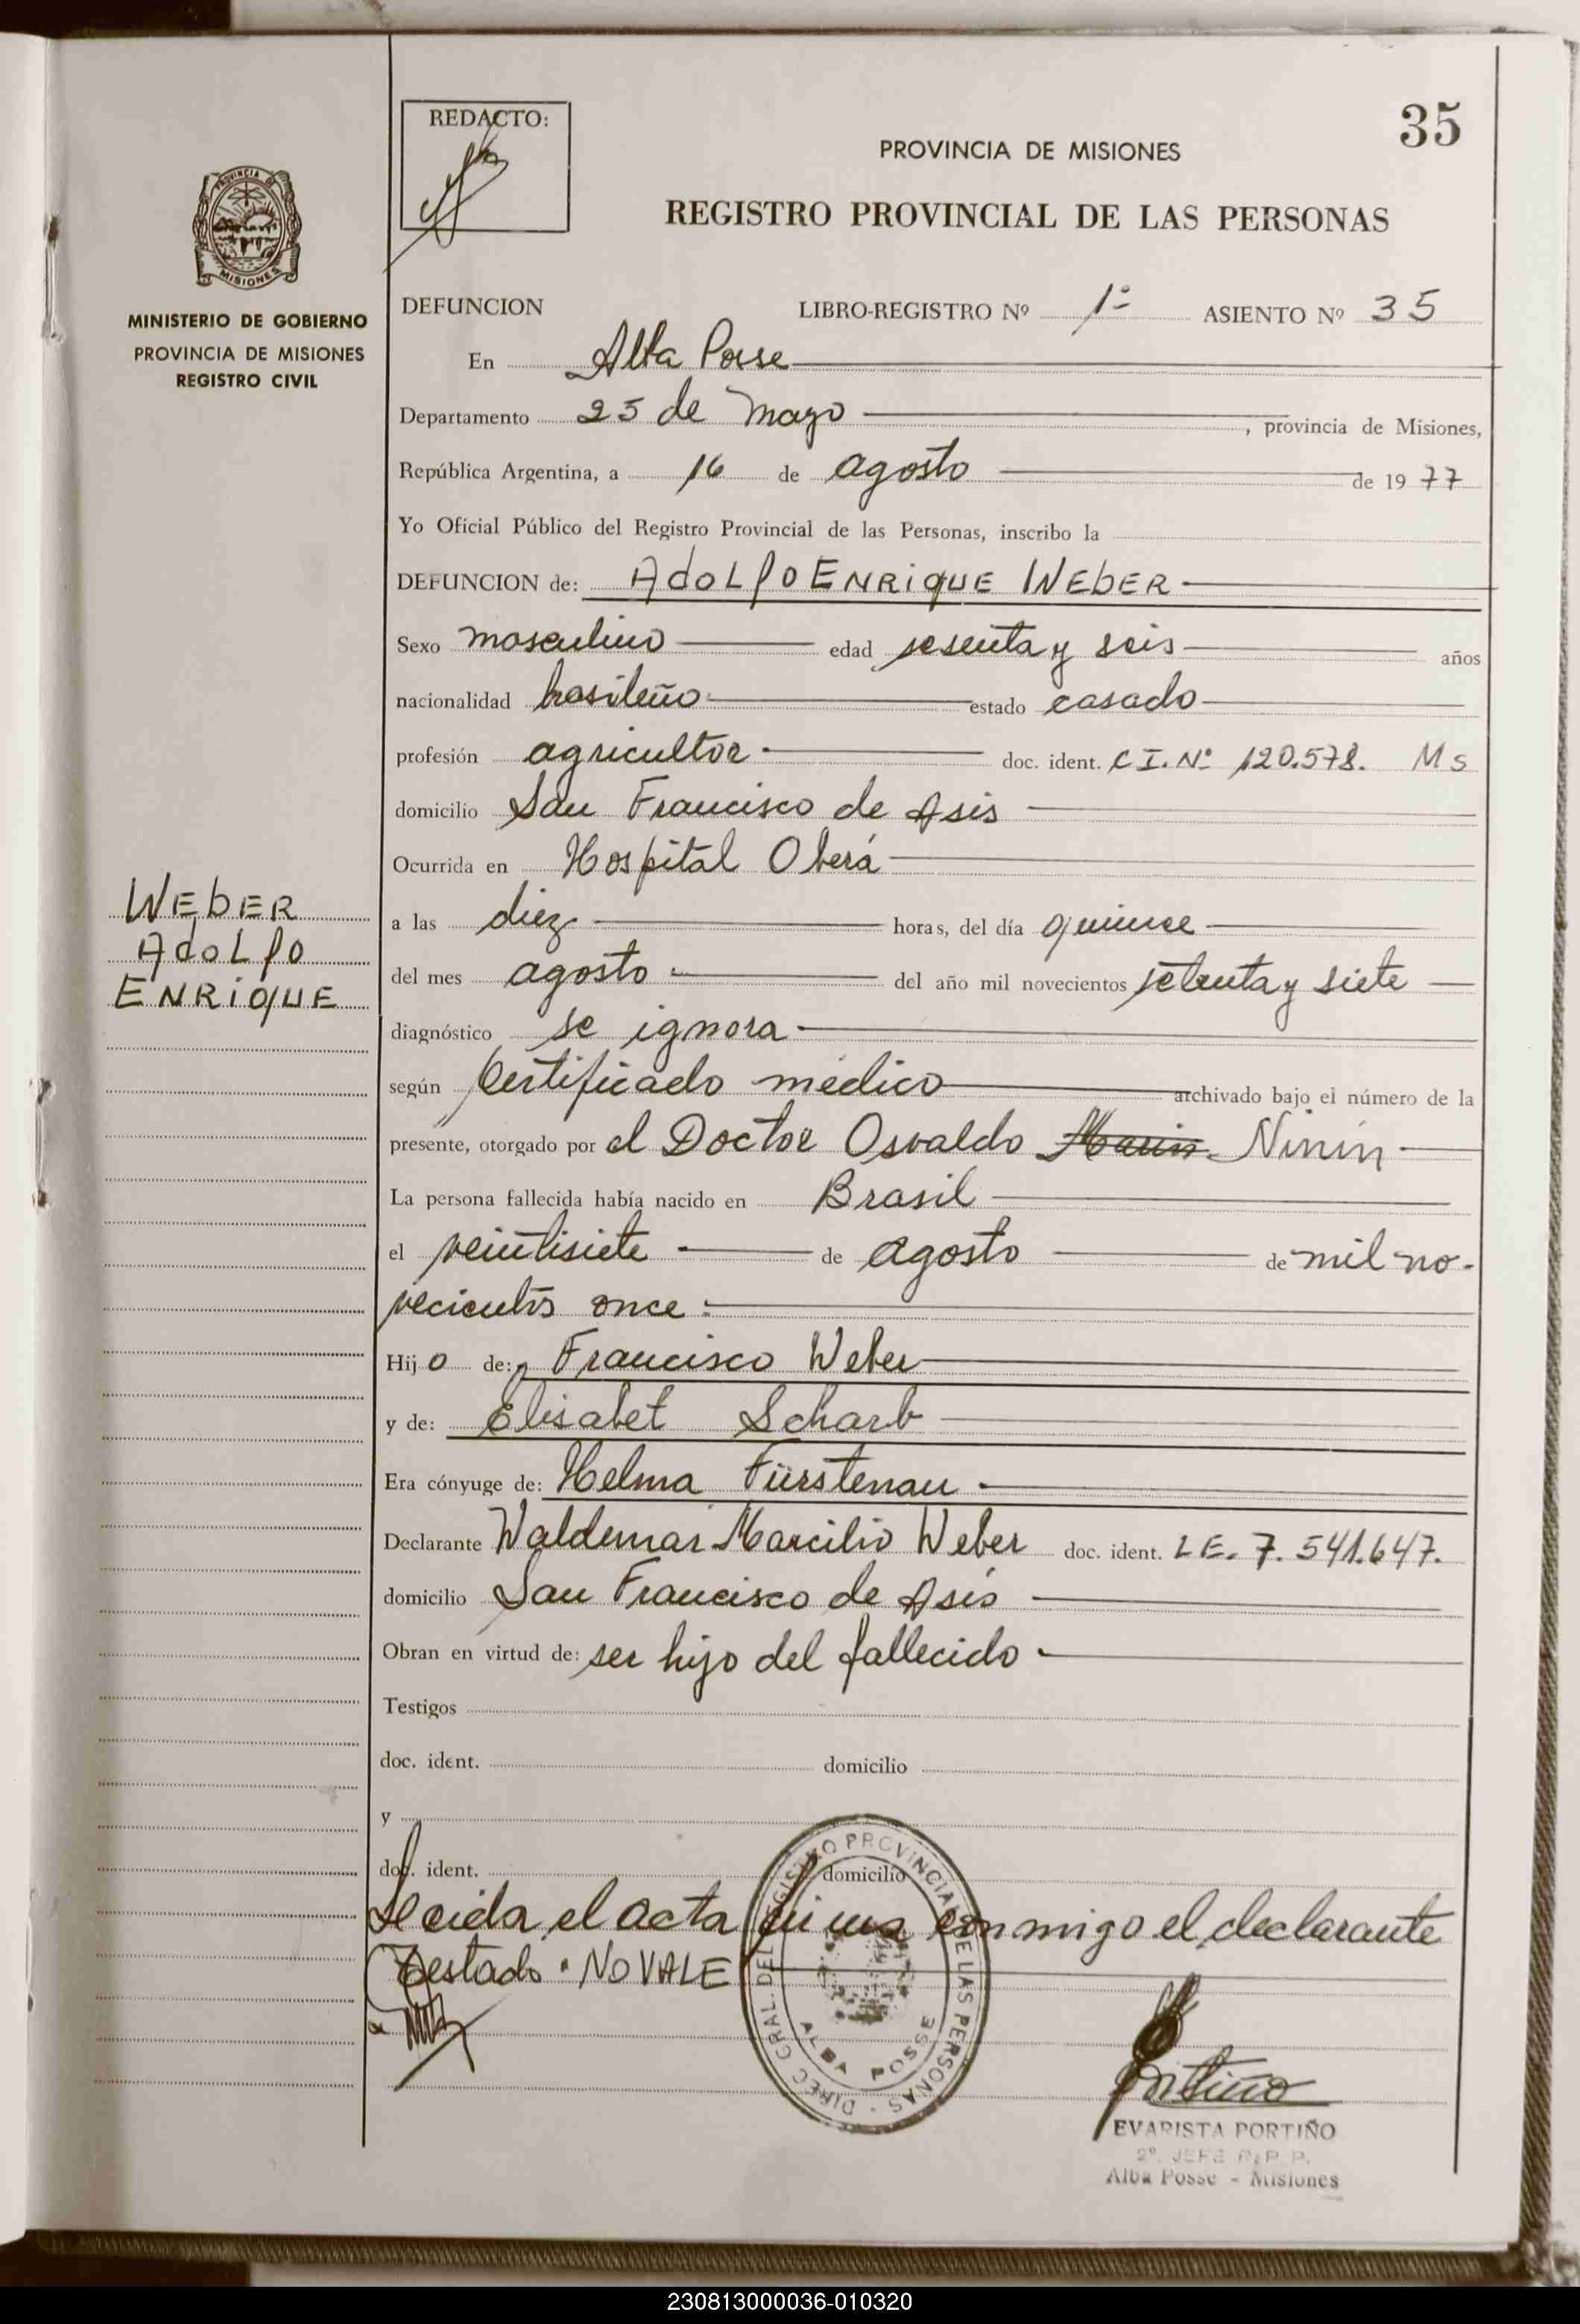 35
REDACTO:
PROVINCIA DE MISIONES
REGISTRO PROVINCIAL DE LAS PERSONAS
PROVINCIA DE
MISIONES
MINISTERIO DE GOBIERNO
PROVINCIA DE MISIONES
REGISTRO CIVIL
DEFUNCION LIBRO-REGISTRO Nº 1º ASIENTO Nº 35
En Alba Posse
Departamento 25 de Mayo, provincia de Misiones,
República Argentina, a 16 de agosto de 1977
Yo Oficial Público del Registro Provincial de las Personas, inscribo la
DEFUNCION de: ADOLFO ENRIQUE WEBER
Sexo masculino edad sesenta y seis años
nacionalidad brasileño estado casado
profesión agricultor doc. ident. C.I. Nº 120.578. Ms
domicilio San Francisco de Asis
Ocurrida en Hospital Oberá
WEBER
ADOLFO
ENRIQUE
a las diez horas, del día quince
del mes agosto del año mil novecientos setenta y siete
diagnóstico se ignora
según Certificado médico archivado bajo el número de la
presente, otorgado por el Doctor Osvaldo Marin Ninín
La persona fallecida había nacido en Brasil
el veintisiete de agosto de mil no-
vecientos once
Hijo de: Francisco Weber
y de: Elisabet Scharb
Era cónyuge de: Helma Fürstenau
Declarante Waldemar Marcilio Weber doc. ident. L.E. 7.541.647.
domicilio San Francisco de Asís
Obran en virtud de: ser hijo del fallecido
Testigos
doc. ident. domicilio
y
doc. ident. domicilio
Leida el acta firma conmigo el declarante
Testado · NO VALE
DIREC. GRAL. DEL REGISTRO PROVINCIAL DE LAS PERSONAS
ALBA POSSE
Portiño
EVARISTA PORTIÑO
2º. JEFE R.P.P.
Alba Posse - Misiones
230813000036-010320